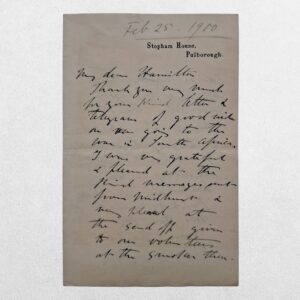 Feb 25 - 1900
Stopham House,
Pulborough.
My dear Hamilton
Thank you very much
for your kind letter &
telegram of good will
on our going to the
war in South Africa.
I was very grateful
& pleased at the
kind messages sent
from Midhurst &
very pleased at
the send off given
to our volunteers
at the smoker there.